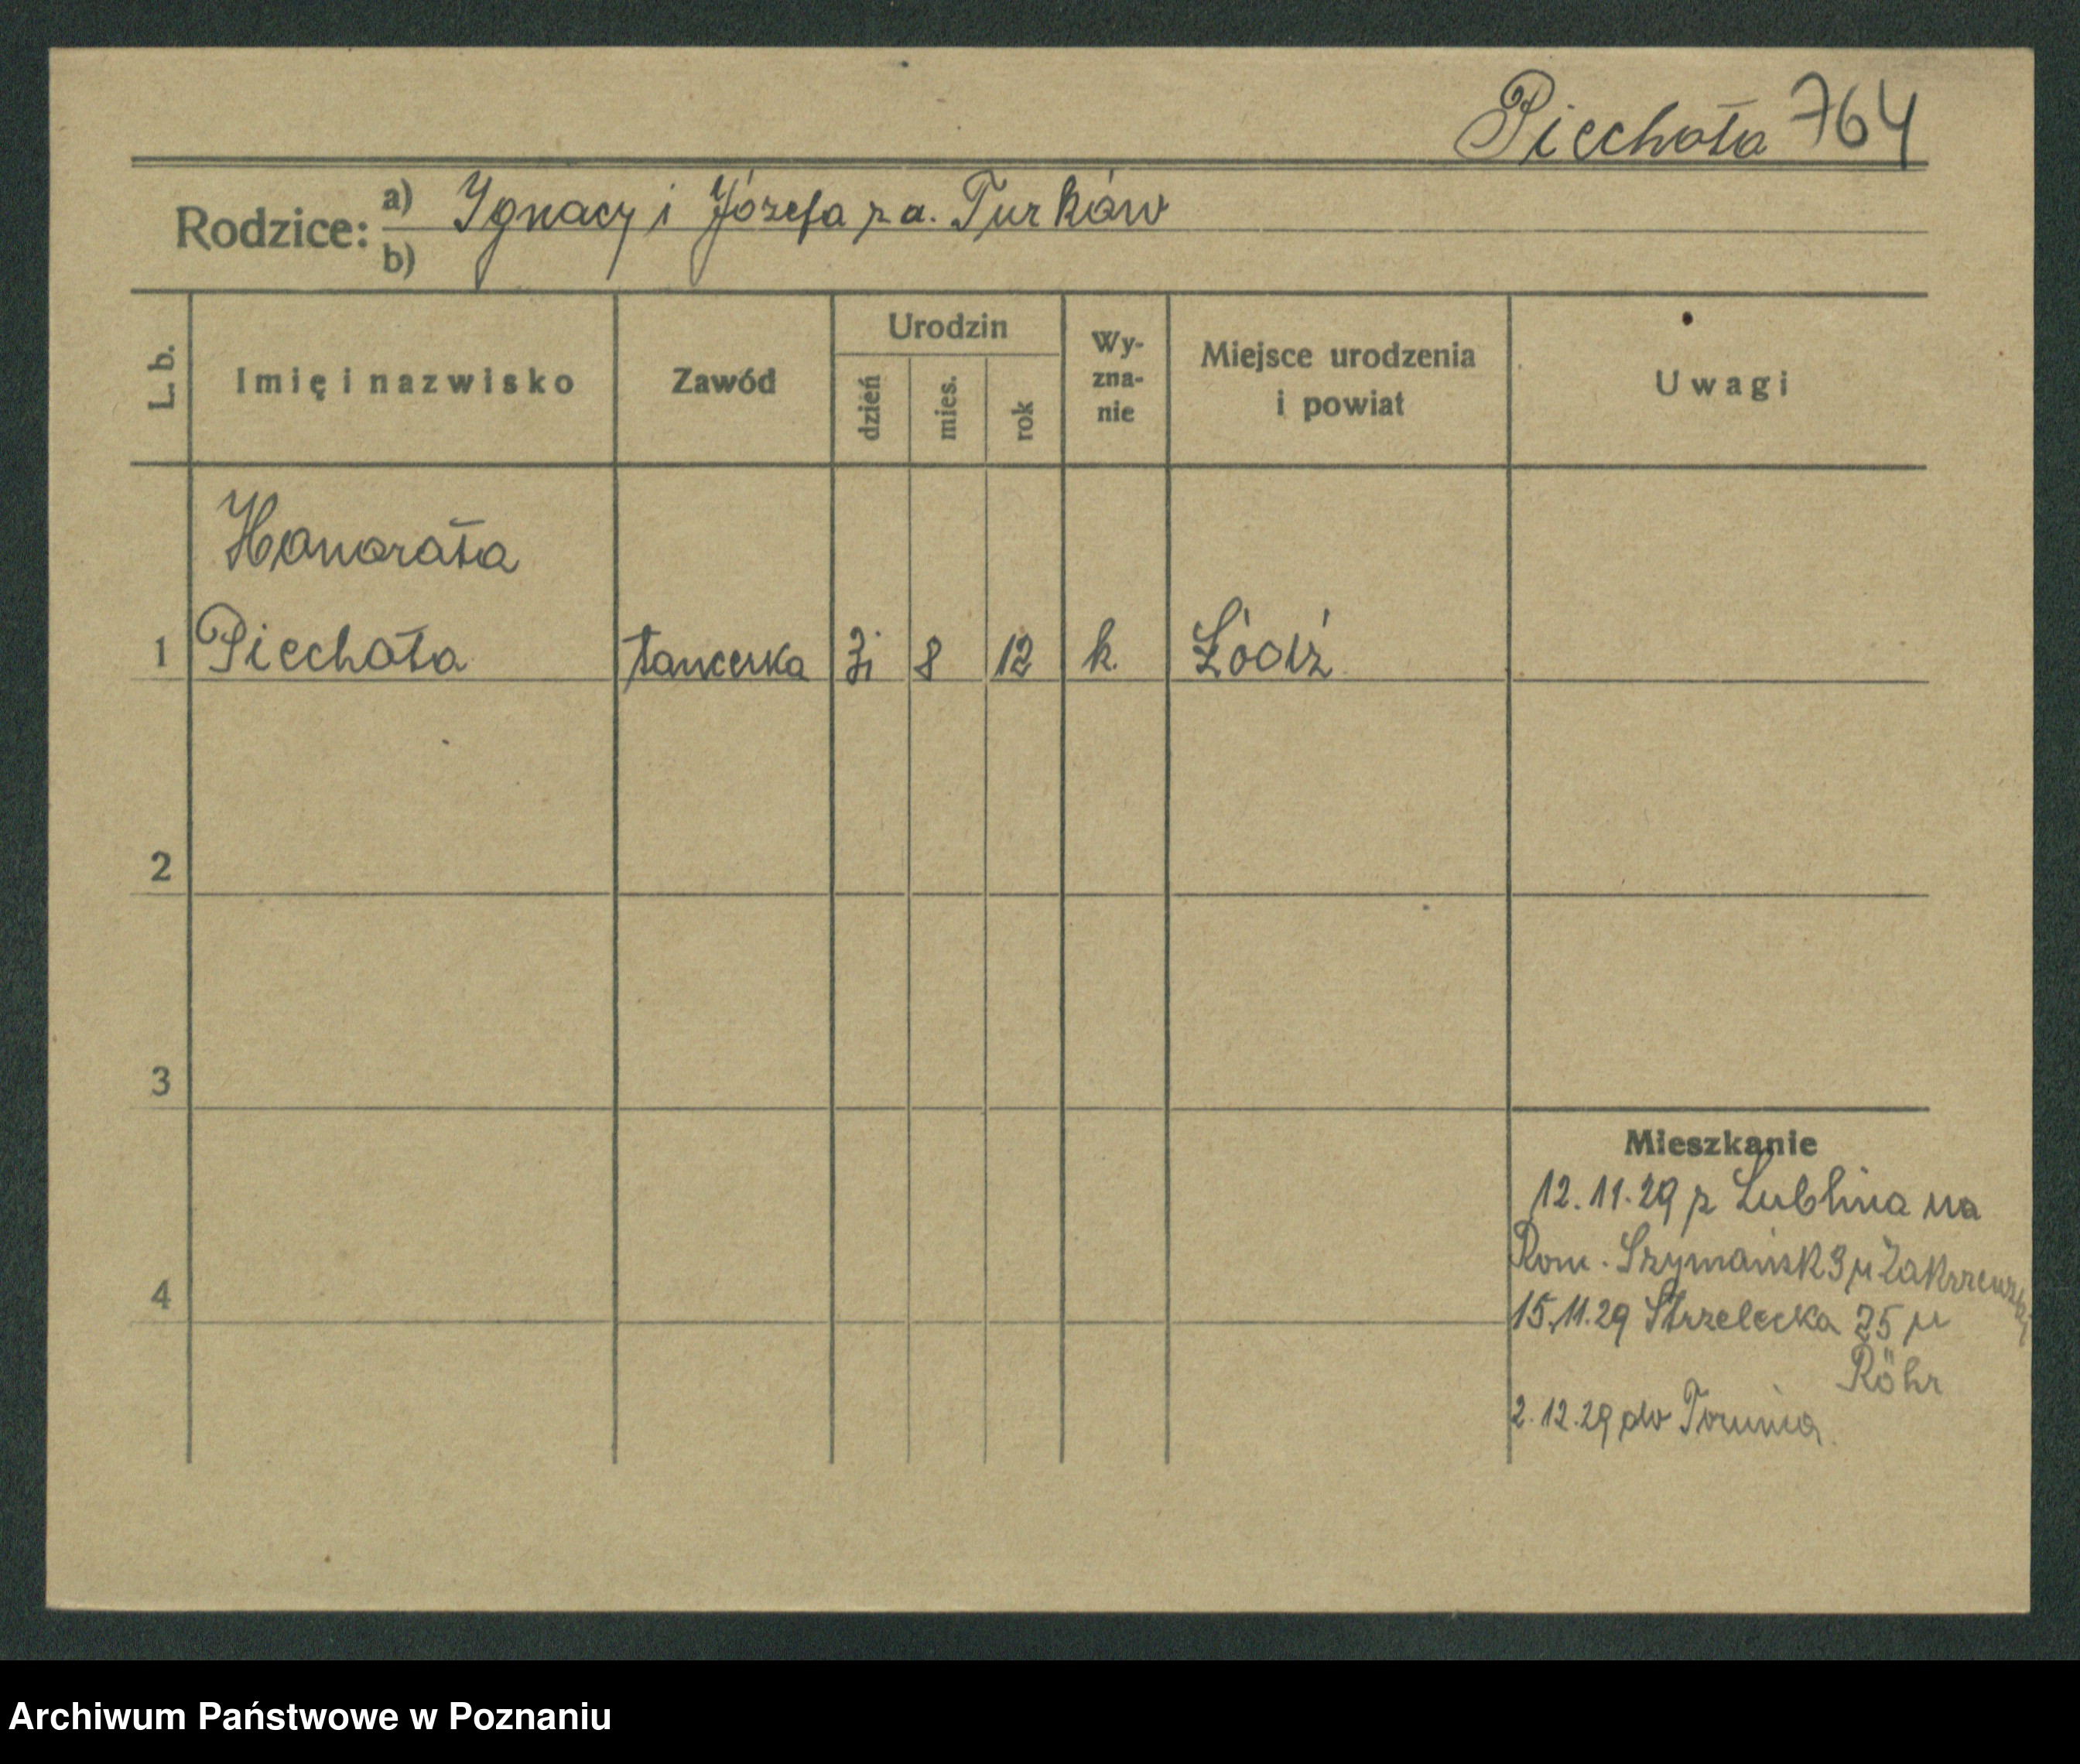 Piechota 764
Rodzice: a) Ignacy i Józefa z d. Turków
b)
L. b. Imię i nazwisko Zawód Urodzin dzień mies. rok Wy-zna-nie Miejsce urodzenia i powiat Uwagi
Honorata
1 Piechota tancerka 8 12 k. Łódź
2
3
Mieszkanie
12.11.29 z Lublina na
4 Rom. Szymańsk 3 u Zakrzewskiej
15.11.29 Strzelecka 25 u
Röhr
2.12.29 do Torunia
Archiwum Państwowe w Poznaniu